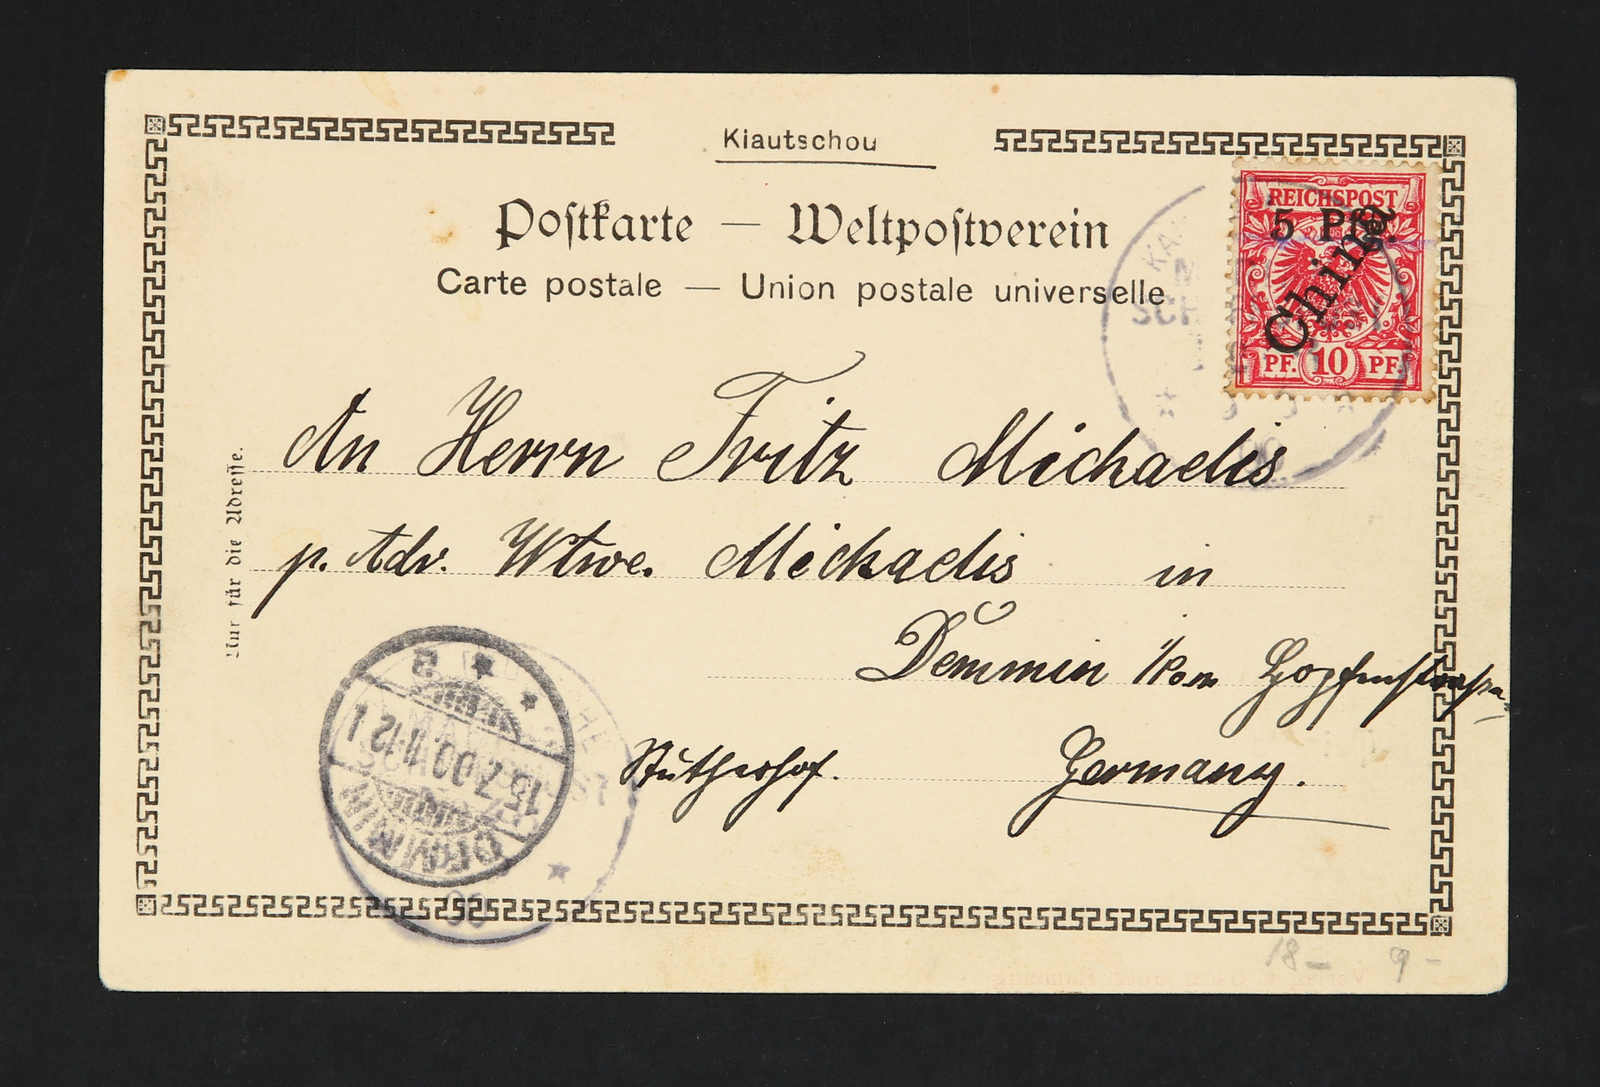 Kiautschou
Postkarte — Weltpostverein
Carte postale — Union postale universelle
REICHSPOST
5 Pfg.
China
PF. 10 PF.
An Herrn Fritz Michaelis
p. Adr. Wtwe. Michaelis in
Demmin i/Pom
Germany.
Nur für die Adresse.
DEMMIN
15.7.00.11-12
00
18 – 9 –